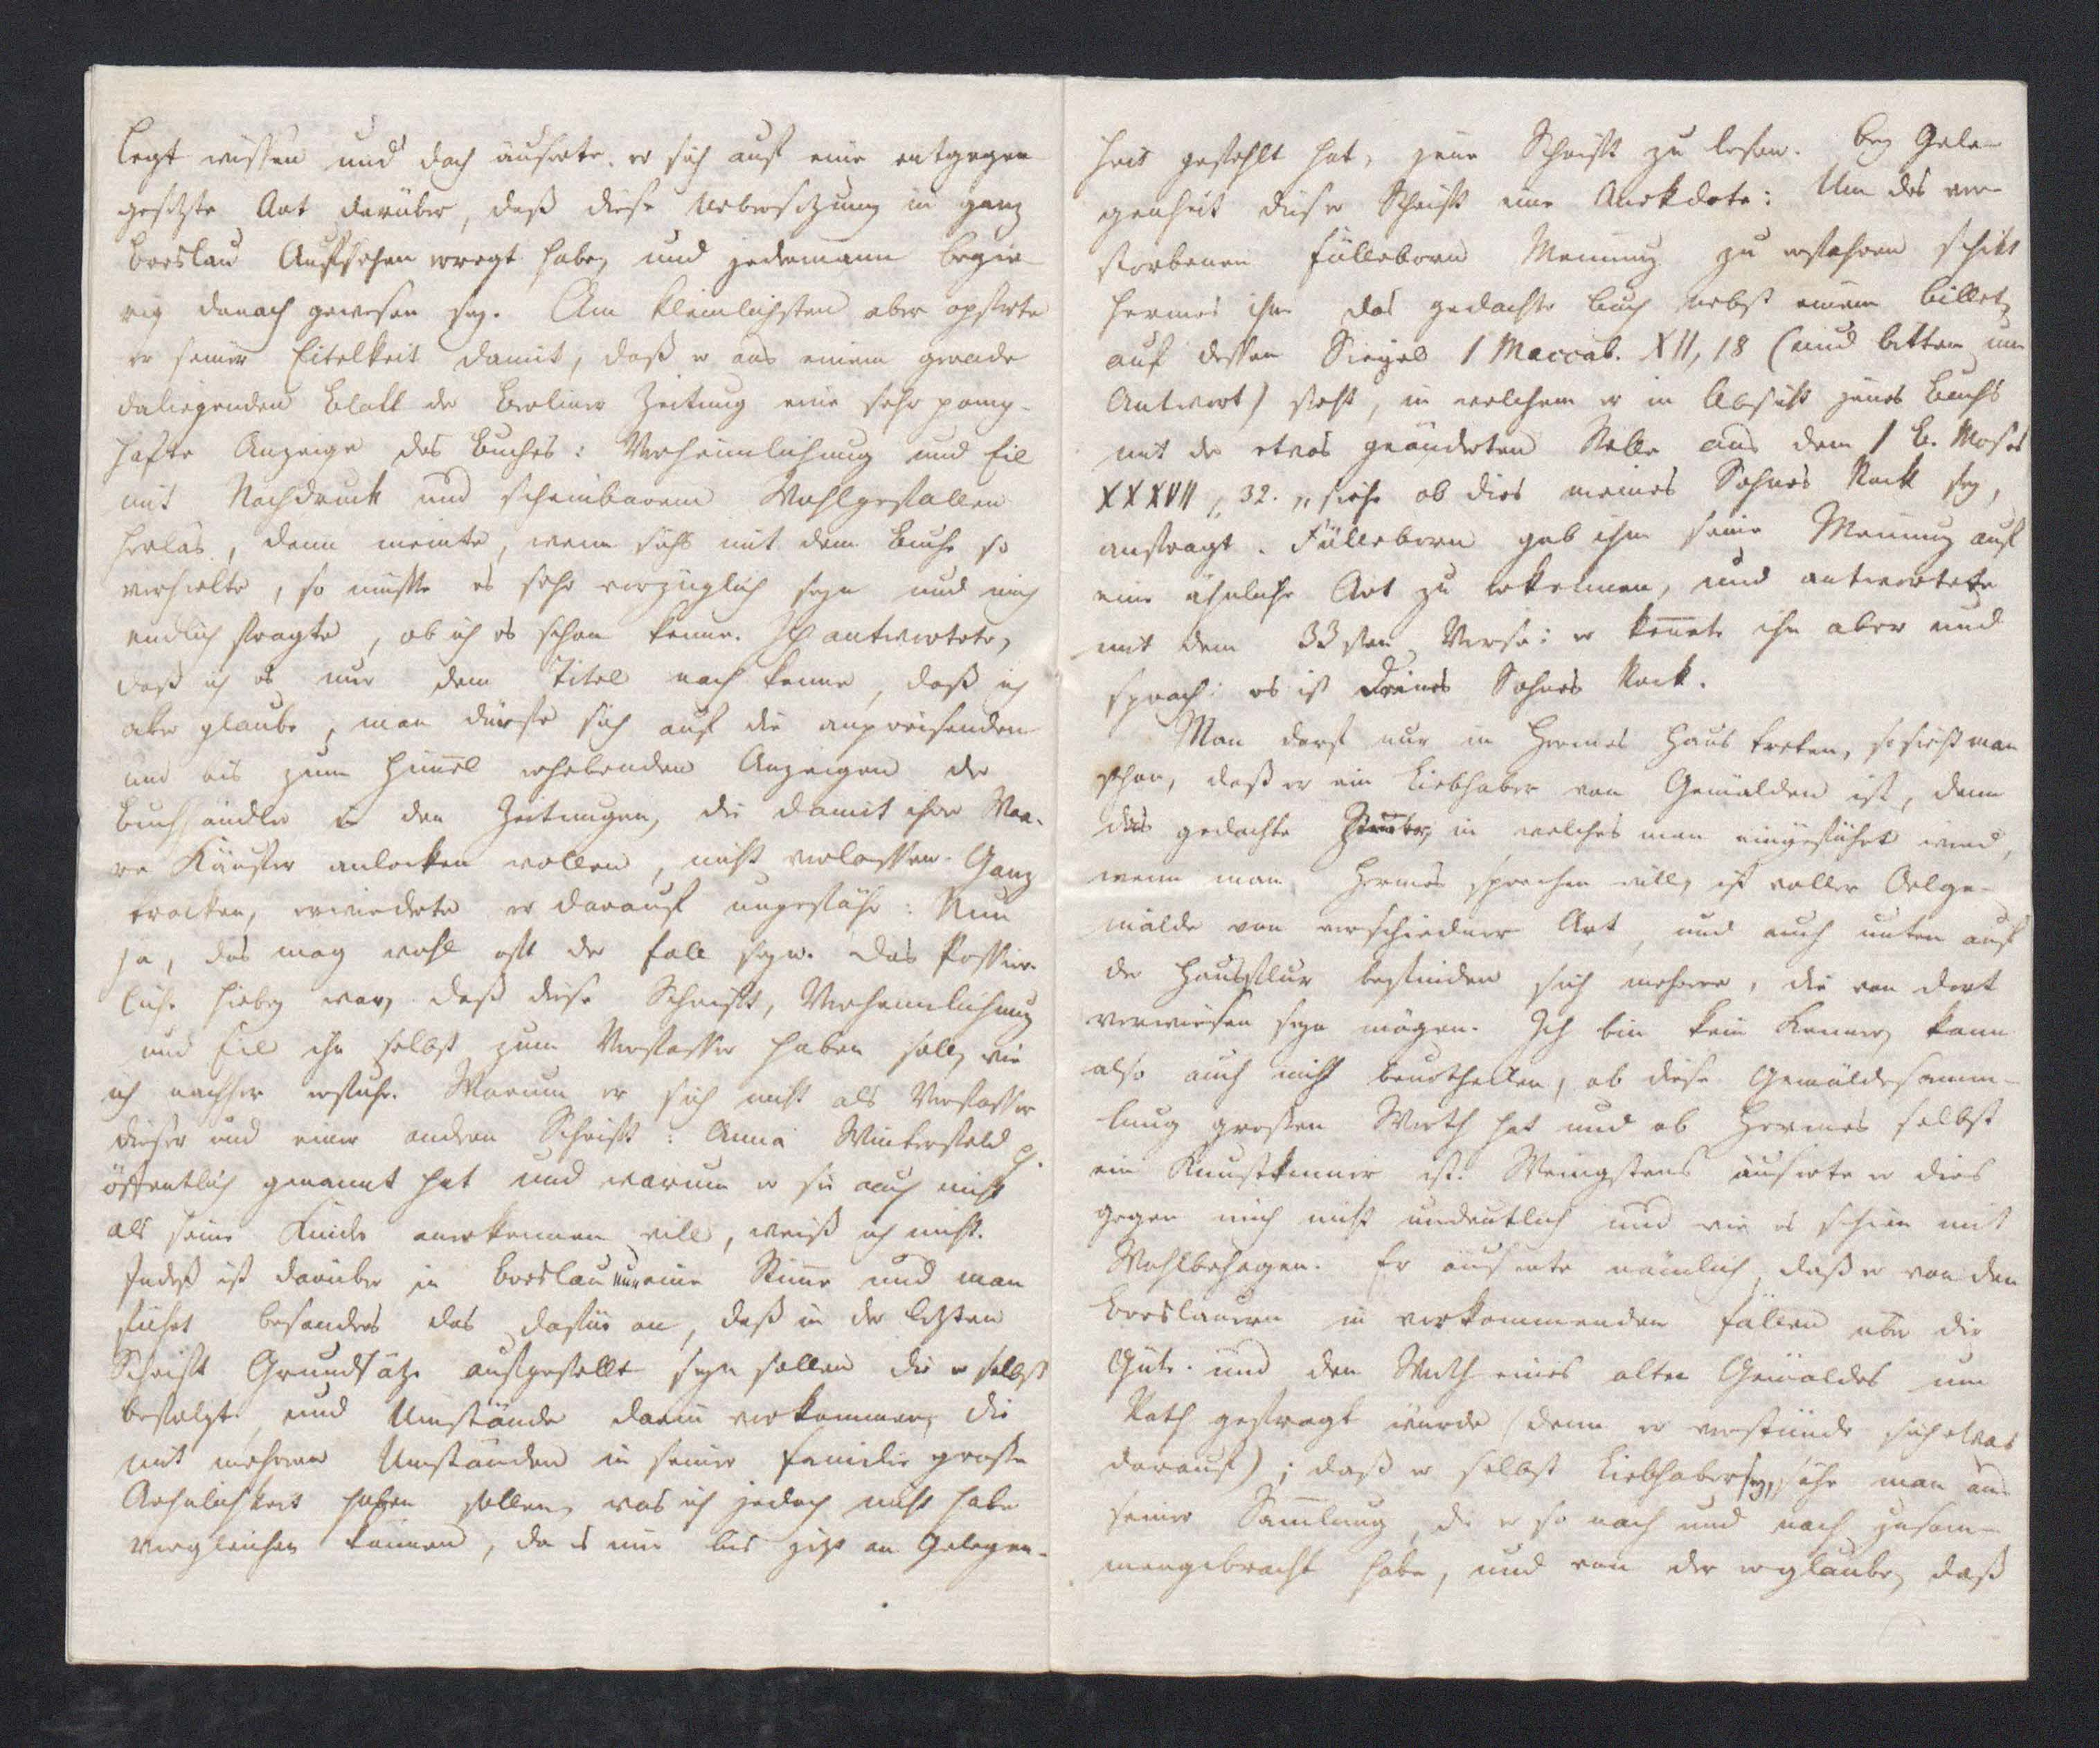 legt wissen und doch äuserte er sich auf eine entgegen
gesetzte Art darüber, daß diese Uebersetzung in ganz
Breslau Aufsehen erregt habe, und jedermann begie-
rig danach gewesen sey. Am kleinlichsten aber opferte
er seiner Eitelkeit damit, daß er aus einem gerade
daliegenden Blatt der Berliner Zeitung eine sehr pomp-
hafte Anzeige des Buches: Verheimlichung und Eil
mit Nachdruck und scheinbarem Wohlgefallen
herlas, dann meinte, wenn sichs mit dem Buche so
verhielte, so müsste es sehr vorzüglich seyn und mich
endlich fragte, ob ich es schon kenne. Ich antwortete,
daß ich es nur dem Titel nach kenne, daß ich
aber glaube, man dürfe sich auf die anpreisenden
und bis zum Him̅el erhebenden Anzeigen der
Buchhändler in den Zeitungen, die damit ihre Waa-
re Käufer anlocken wollen, nicht verlassen. Ganz
trocken, erwiederte er darauf ungefähr: Nun
ja, das mag wohl oft der Fall seyn. Das Possier-
liche hiebey war, daß diese Schrift, Verheimlichung
und Eil ihn selbst zum Verfasser haben soll, wie
ich nachher erfuhr. Warum er sich nicht als Verfasser
dieser und einer andern Schrift: Anna Winterfeld
öffentlich genannt hat und warum er sie auch nicht
als seine Kinder anerkennen will, weiß ich nicht.
Indeß ist darüber in Breslau nur eine Stim̅e und man
führt besonders das dafür an, daß in der letzten
Schrift Grundsätze aufgestellt seyn sollen die er selbst
befolgt, und Umstände darin vorkommen, die
mit mehrern Umständen in seiner Familie große
Aehnlichkeit haben sollen, was ich jedoch nicht habe
vergleichen können, da es mir bis jetzt an Gelegen-
heit gefehlt hat, jene Schrift zu lesen. Bey Gele-
genheit dieser Schrift eine Anekdote: Um des ver-
storbenen Fülleborn Meinung zu erfahren schikt
Hermes ihm das gedachte Buch nebst einem Billet,
auf dessen Siegel 1 Maccab. XII, 18 (und bitten um
Antwort) steht, in welchem er in Absicht jenes Buchs
mit der etwas geänderten Stelle aus dem 1 B. Moses
XXXVII, 32. „siehe ob dies meines Sohnes Rock sey,
anfragt. Fülleborn gab ihm seine Meinung auf
eine ähnliche Art zu erkennen, und antwortete
mit dem 33sten Verse: er ken̅ete ihn aber und
sprach: es ist Deines Sohnes Rock.
Man darf nur in Hermes Haus treten, so sieht man
schon, daß er ein Liebhaber von Gemälden ist, denn
das gedachte in welches man eingeführt wird,
wenn man Hermes sprechen will, ist voller Oelge-
mälde von verschiedner Art, und auch unten auf
der Hausflur befinden sich mehrere, die von dort
verwiesen seyn mögen. Ich bin kein Kenner, kann
also auch nicht beurtheilen, ob diese Gemäldesamm-
lung großen Werth hat und ob Hermes selbst
ein Kunstkenner ist. Wenigstens äuserte er dies
gegen mich nicht undeutlich und wie es schien mit
Wohlbehagen. Er äuserte nämlich, daß er von den
Breslauern in vorkommenden Fällen über die
Güte und den Werth eines alten Gemäldes um
Rath gefragt würde (denn er verstünde sich etwas
darauf); daß er selbst Liebhaber sey, sähe man an
seiner Sam̅lung, die er so nach und nach zusam-
mengebracht habe, und von der er glaube, daß